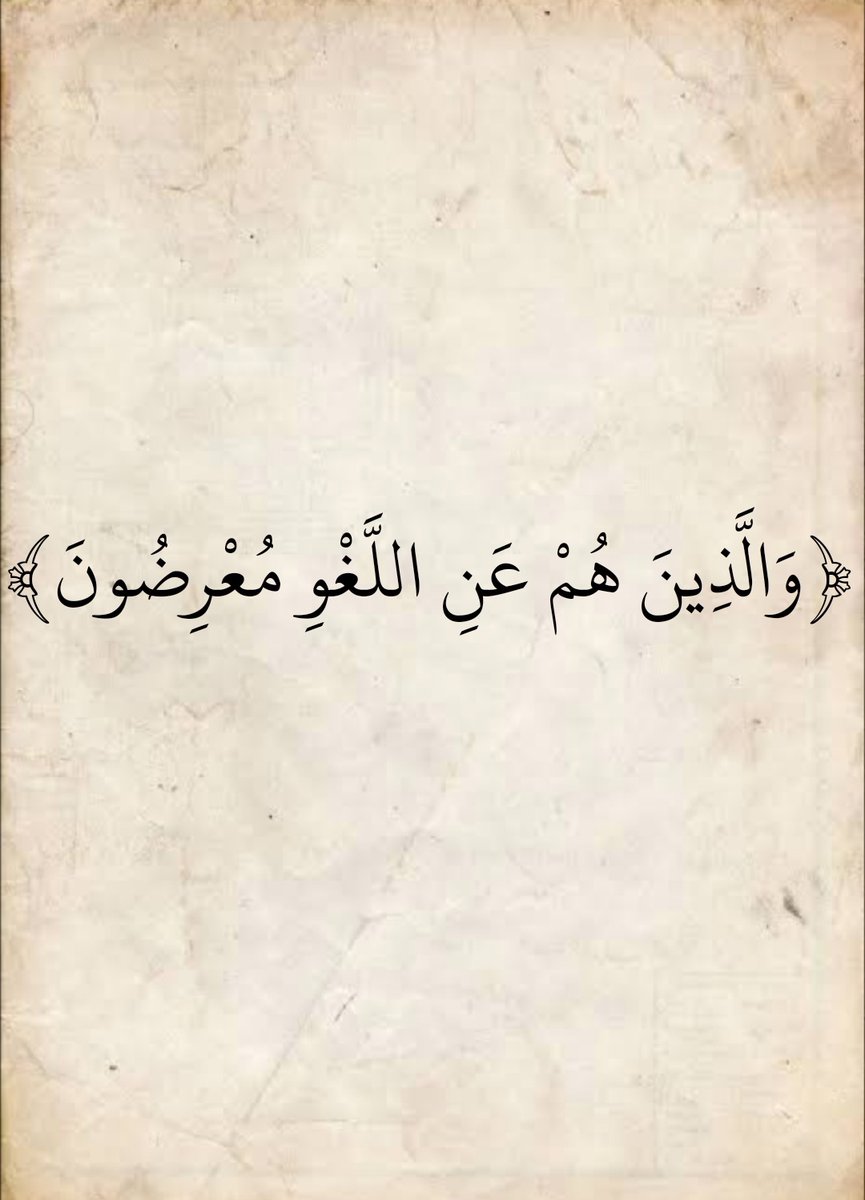 ﴿وَالَّذِينَ هُمْ عَنِ اللَّغْوِ مُعْرِضُونَ﴾